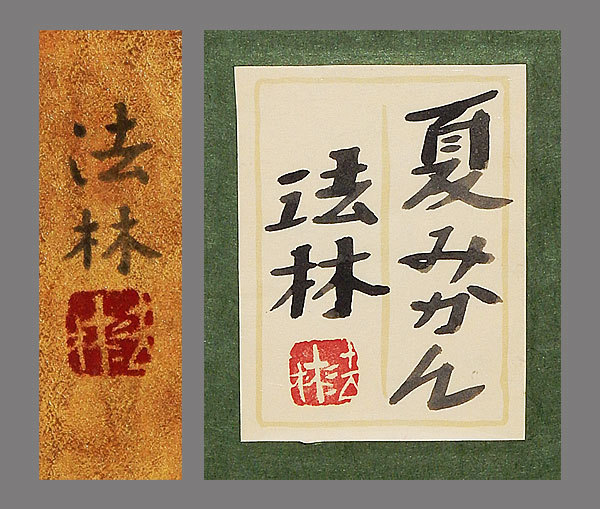 法林
夏みかん
法林